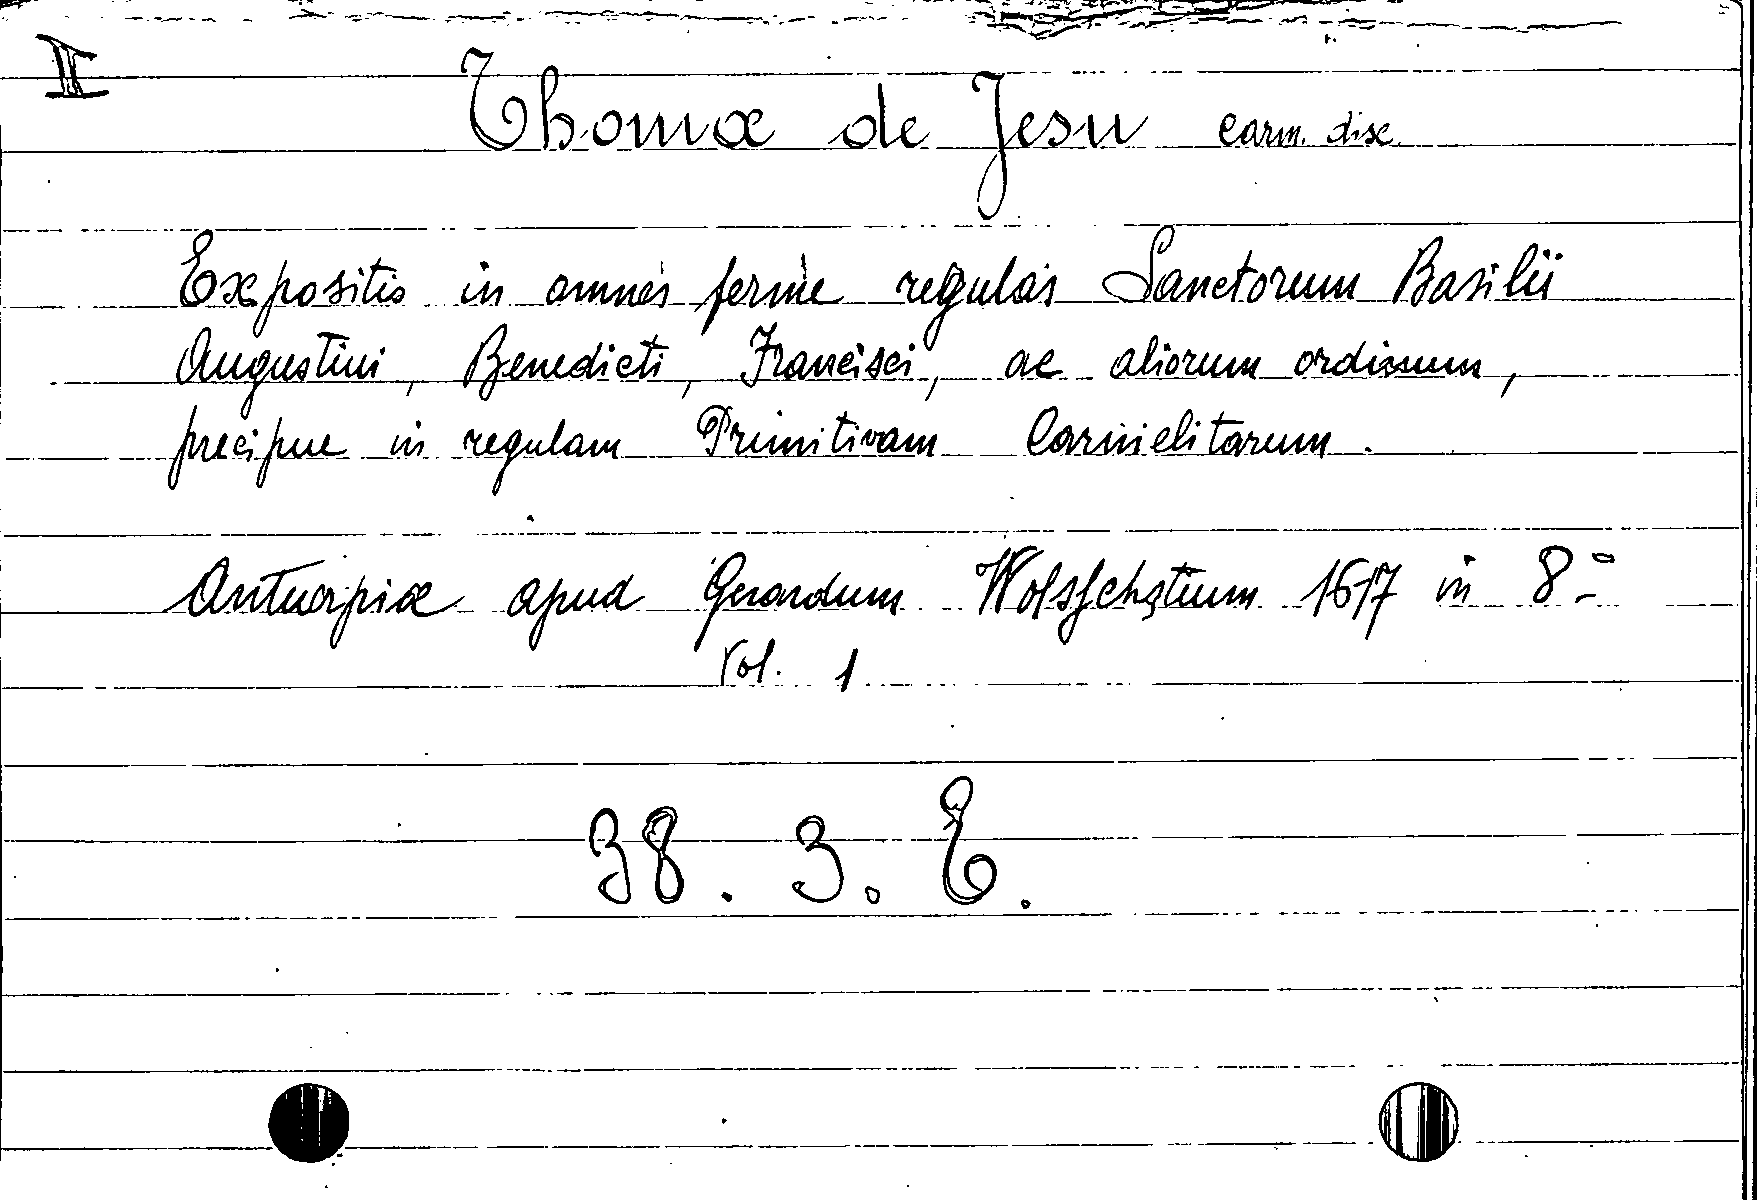 II
Thomæ de Jesu carm. disc.
Expositio in omnes fermè regulas Sanctorum Basilii
Augustini, Benedicti, Francisci, ac aliorum ordinum,
precipue in regulam Primitivam Carmelitarum.
Antuerpiæ apud Gerardum 1617 in 8º
Vol. 1
38. 3. E.